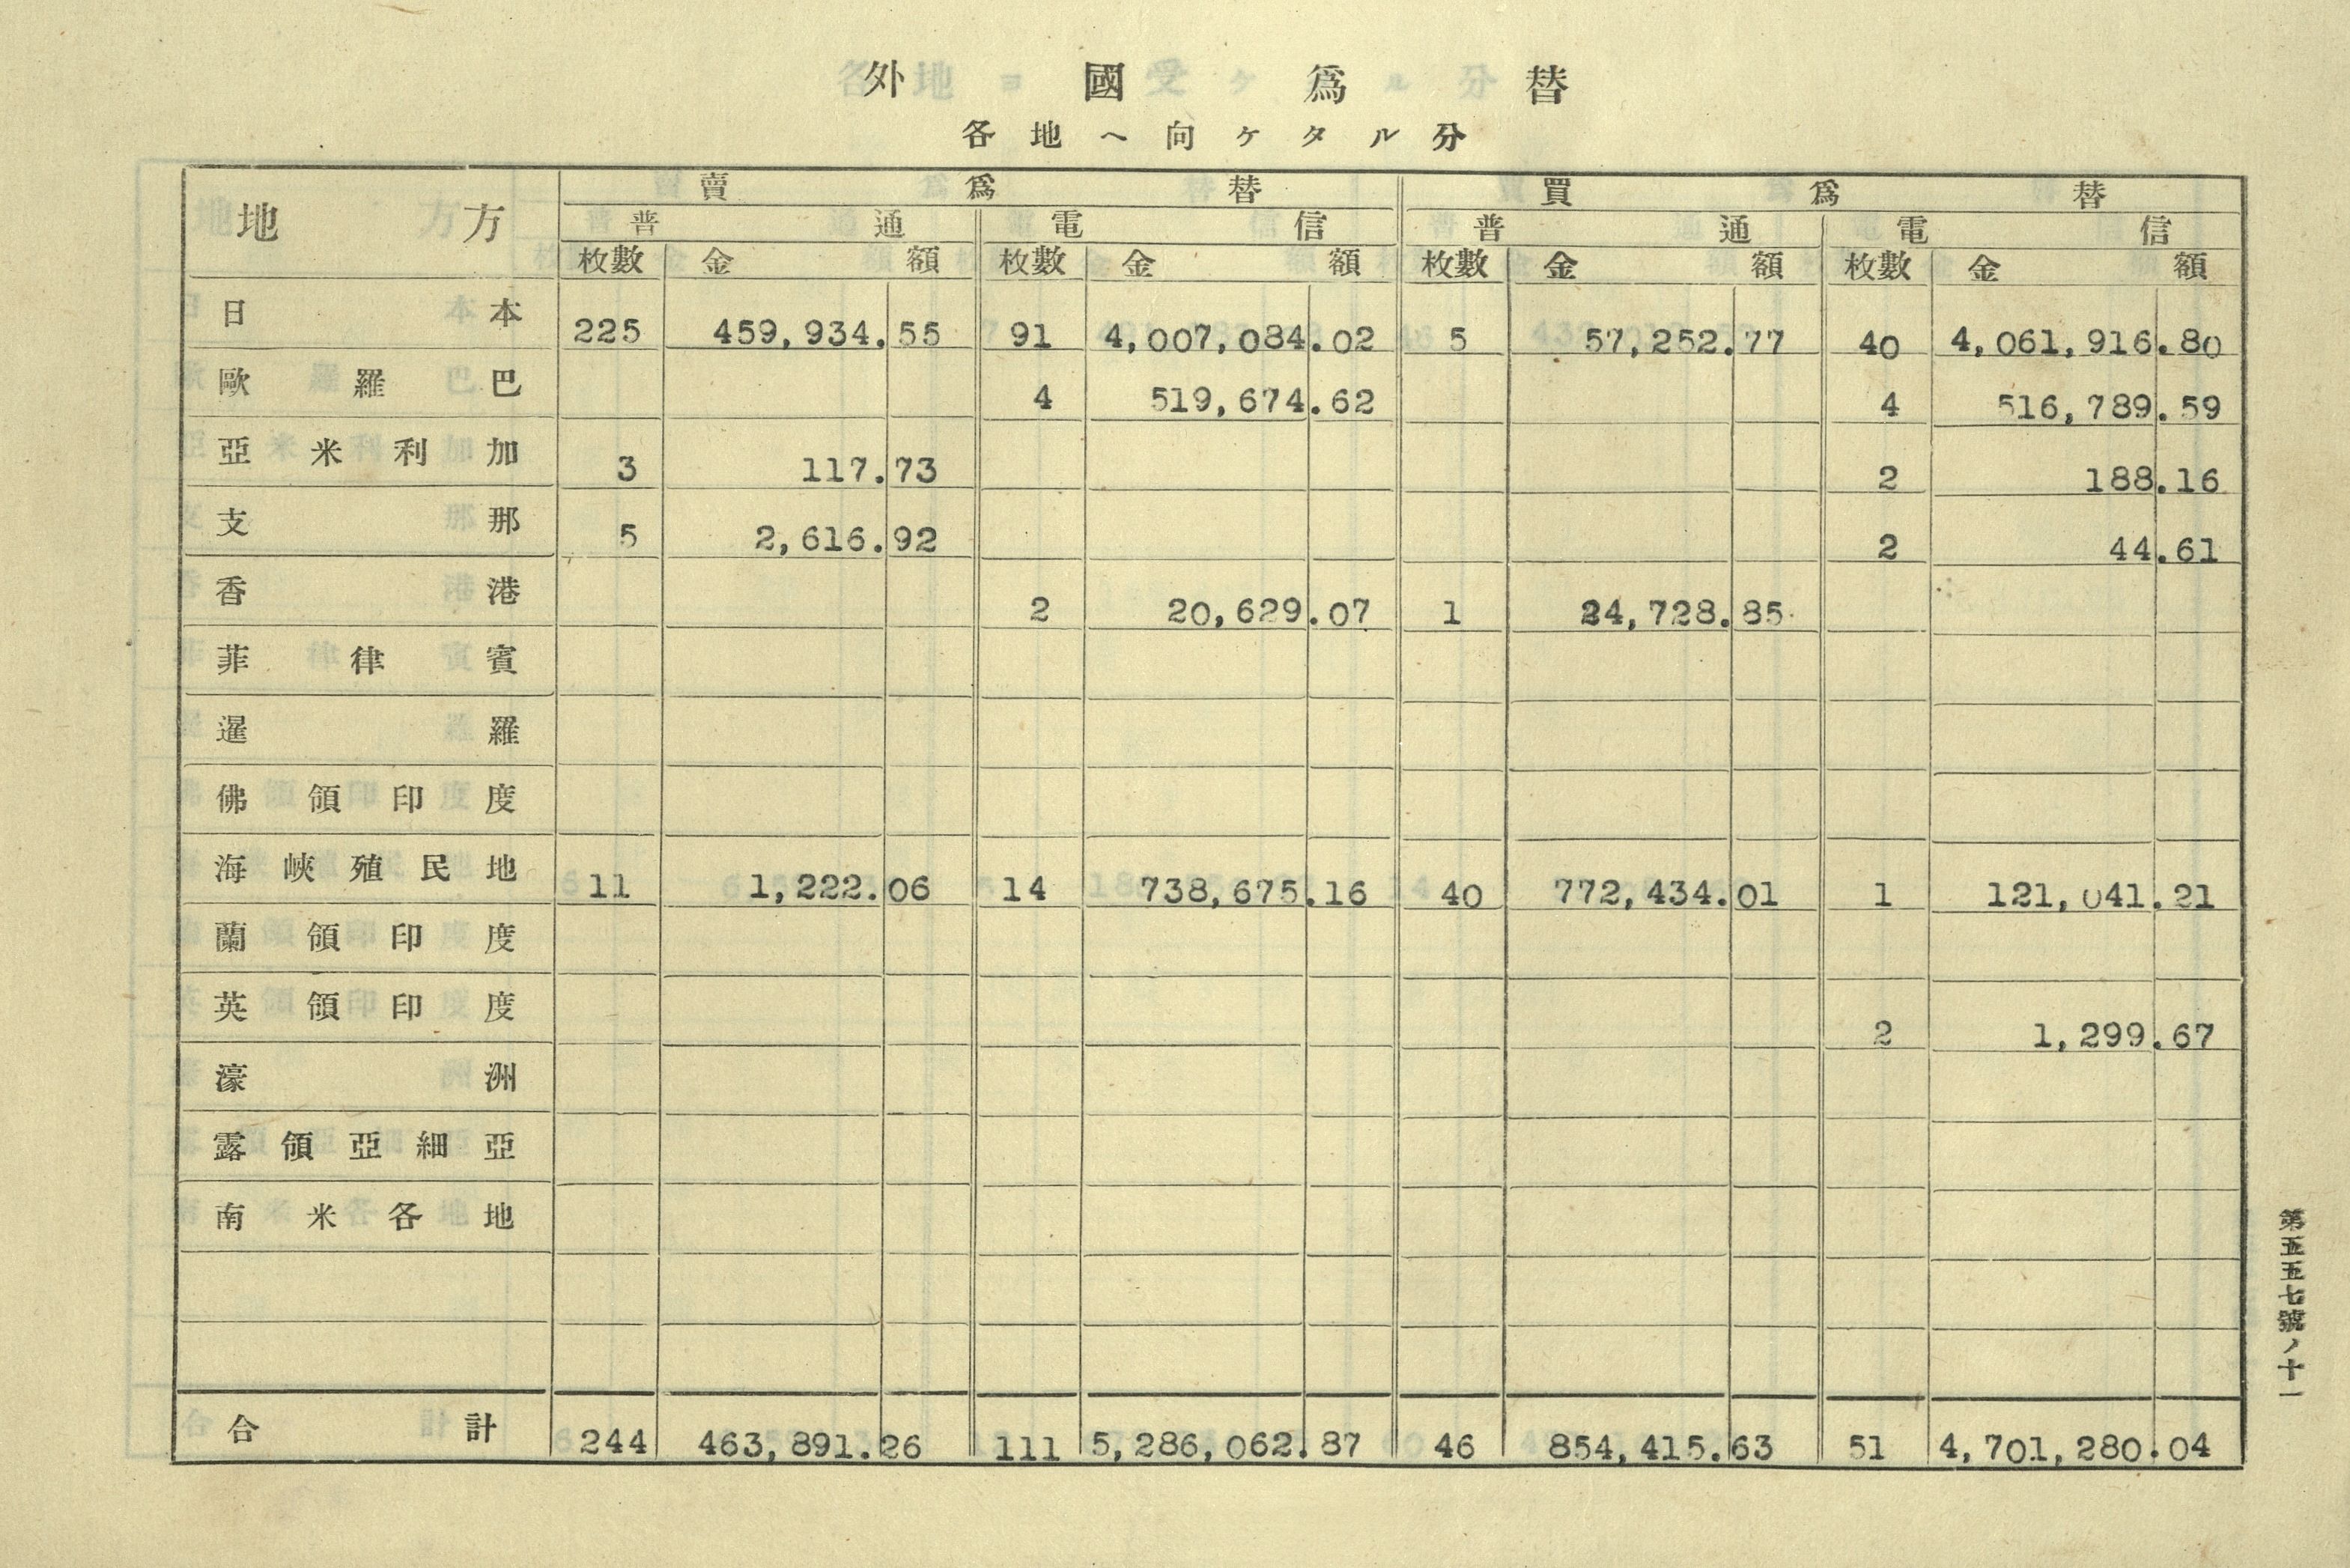 外國爲替
各地ヘ向ケタル分
地方 賣爲替 買爲替
普通 電信 普通 電信
枚數 金額 枚數 金額 枚數 金額 枚數 金額
日本 225 459,934.55 91 4,007,084.02 5 57,252.77 40 4,061,916.80
歐羅巴 4 519,674.62 4 516,789.59
亞米利加 3 117.73 2 188.16
支那 5 2,616.92 2 44.61
香港 2 20,629.07 1 24,728.85
菲律賓
暹羅
佛領印度
海峽殖民地 11 1,222.06 14 738,675.16 40 772,434.01 1 121,041.21
蘭領印度
英領印度 2 1,299.67
濠洲
露領亞細亞
南米各地
合計 244 463,891.26 111 5,286,062.87 46 854,415.63 51 4,701,280.04
第五五七號ノ十一